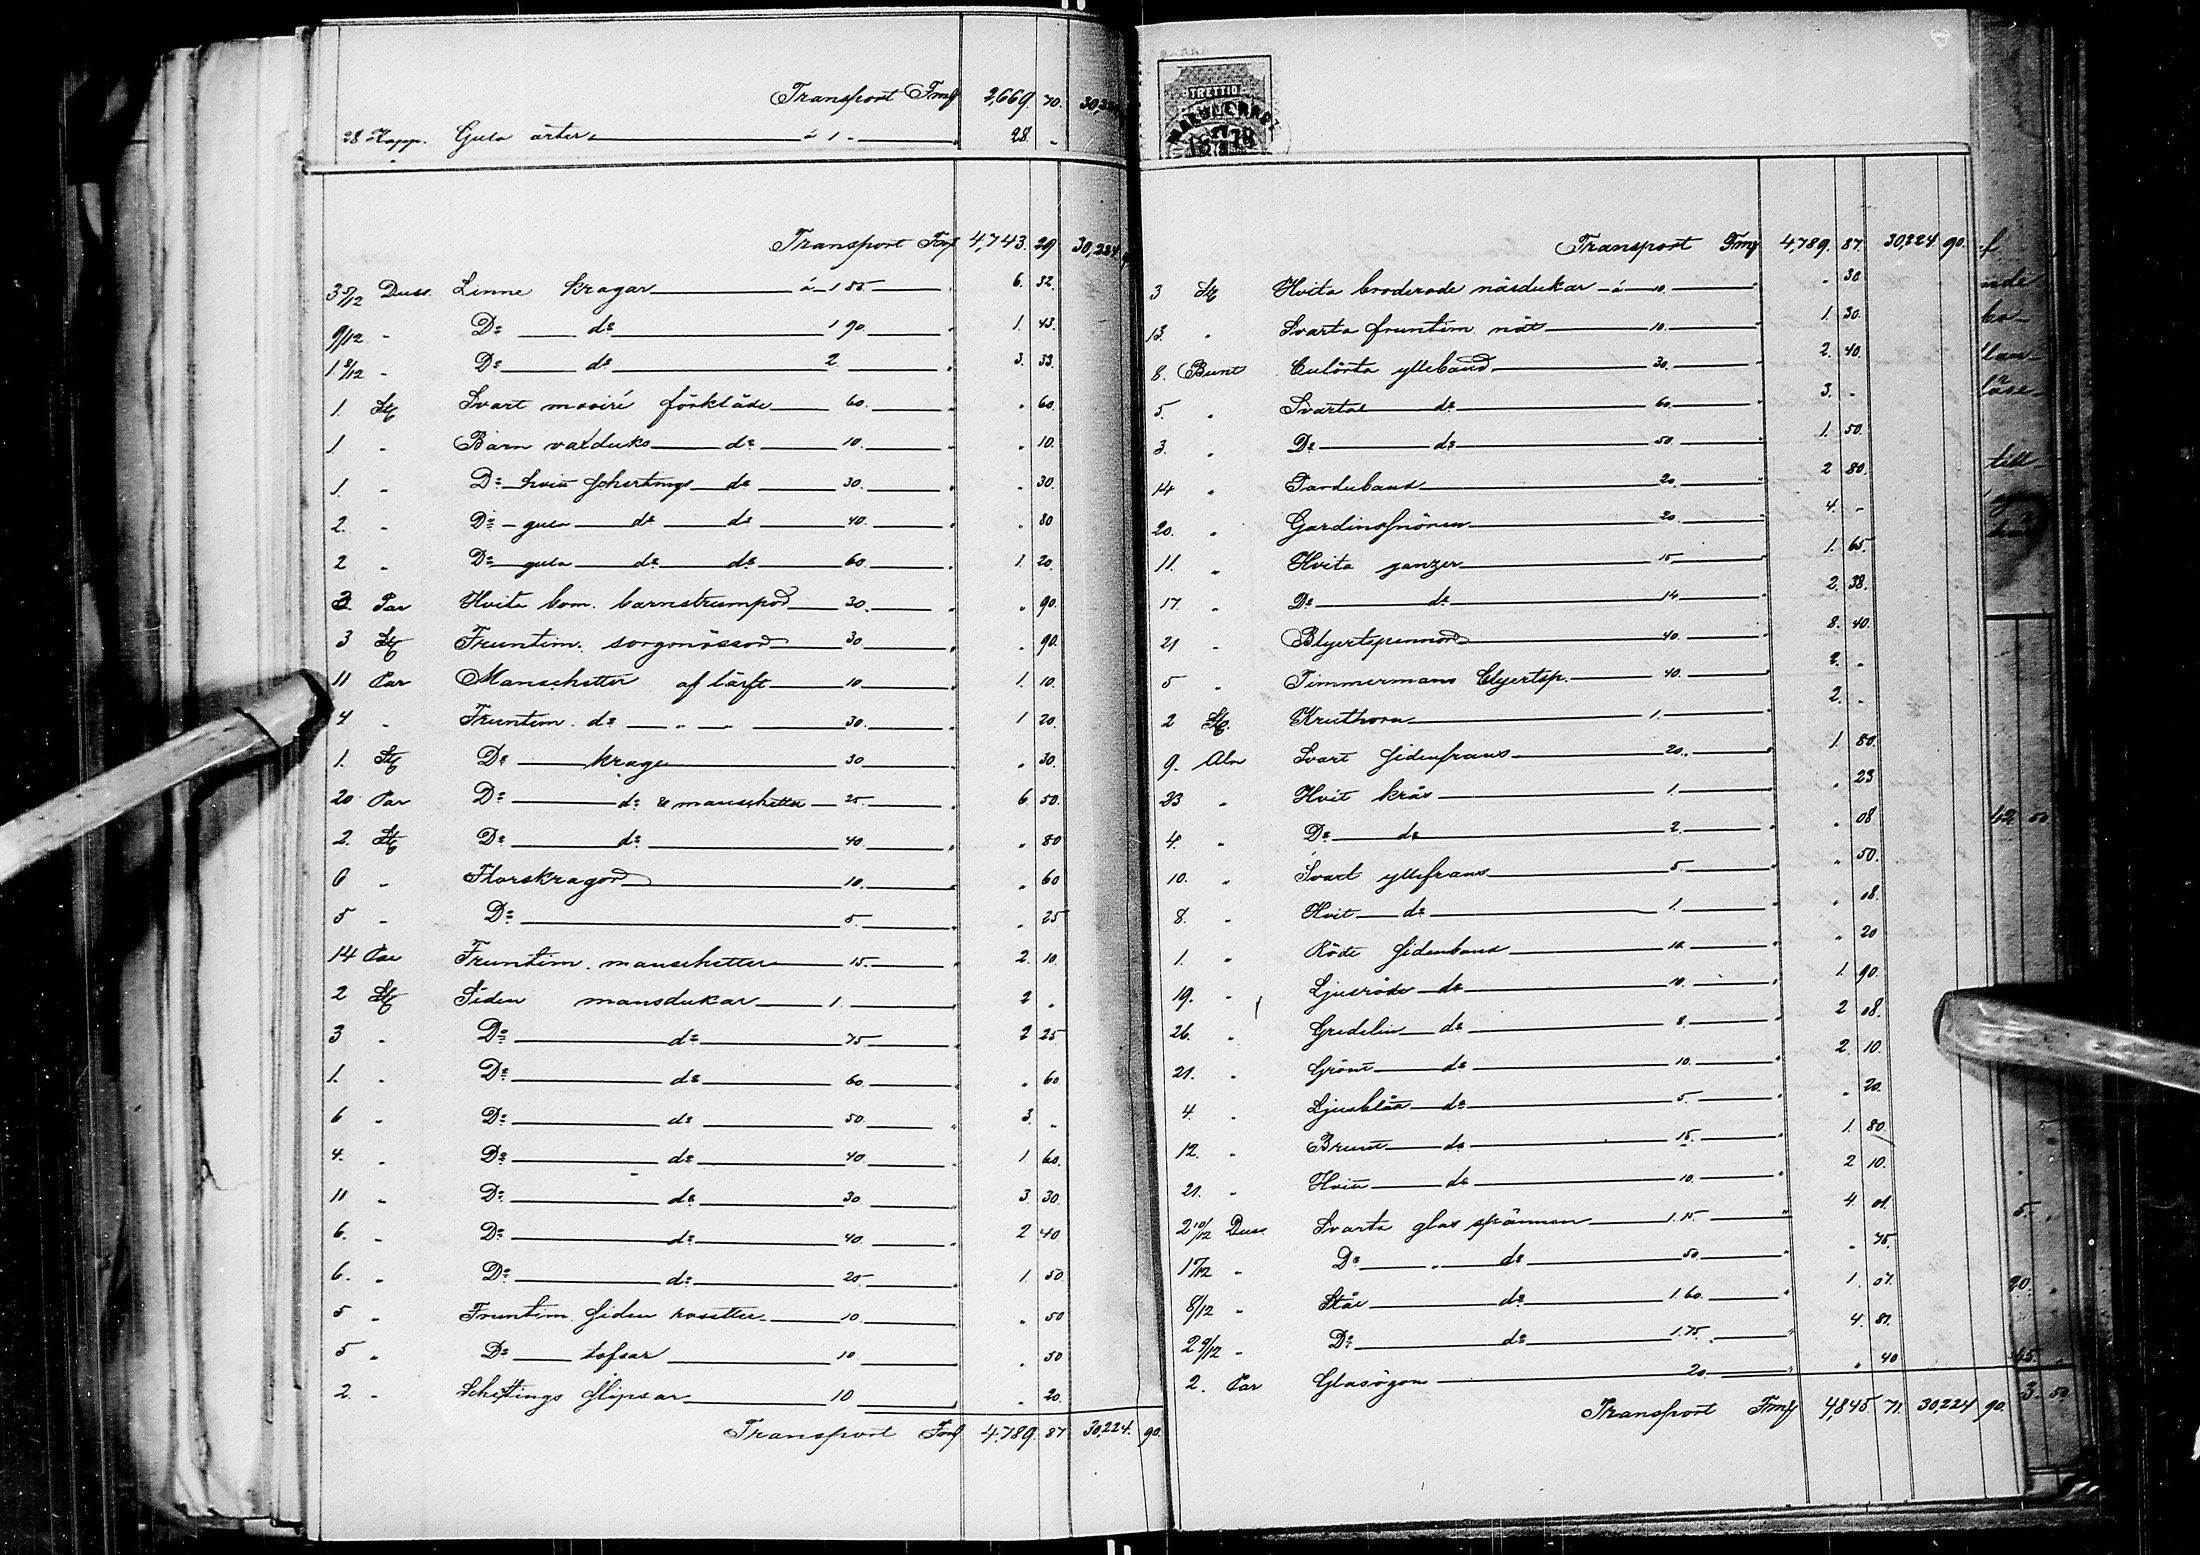 Transport Fmk 2,669. 70. 30,224
28 Kapp. Gula ärter à 1 - 28. -
Transport Fmk 4,743. 29 30,224
3 5/12 Duss. Linne kragar à 1 85 6. 32.
9/12 - Do do 1 90. 1. 43.
1 8/12 - Do do 2 3. 33.
1. St Svart moairé förkläde 60. . 60.
1 - Barn vaxduks do 10. . 10.
1. - Do hvita schertings do 30. . 30.
2. - Do gula do do 40. . 80
2 - Do gula do do 60. 1. 20.
3 Par Hvita bom. barnstrumpor 30. . 90.
3 St Fruntim. sorgmössor 30 . 90.
11 Par Manschetter af lärft 10 1. 10.
4 - Fruntim. do - - 30. 1 20.
1. St Do krage 30 . 30.
20 Par Do do & manschetter 25. 6 50.
2. St Do do 40. . 80
6 - Florskragor 10. . 60
5 - Do 5 . 25
14 Par Fruntim. manschetter 15. 2. 10.
2 St Siden mansdukar 1. 2 .
3 - Do do 75 2 25
1. - Do do 60 . 60
6 - Do do 50 3. .
4. - Do do 40 1 60.
11 - Do do 30 3 30.
6. - Do do 40. 2 40
6. - Do do 25 1. 50.
5 " Fruntim. siden rosetter 10 . 50
5 " Do tofsar 10 . 50
2. - Schertings slipsar 10 . 20.
Transport Fmk 4.789. 87 30,224. 90.
TRETTIO
1878
Transport Fmk 4,789. 87. 30,224 90.
3 St Hvita broderade näsdukar à 10. . 30.
13. " Svarta fruntim nät 10. 1. 30.
8. Bunt Culörta ylleband 30. 2. 40.
5. " Svarta do 60. 3. -
3. " Do do 50. 1. 50.
14 " Sarduband 20. 2 80.
20. " Gardinssnören 20. 4. -
11. " Hvita ganzer 15 1. 65.
17. " Do do 14 2. 38.
21 - Blyertspennor 40. 8. 40.
5 " Timmermans blyertsp. 40. 2. -
2 St. Kruthorn 1. 2. -
9. Aln Svart sidenfrans 20. 1. 80.
23 " Hvit krås 1. . 23
4. " Do do 2. . 08
10. " Svart yllefrans 5. . 50.
8. " Hvit do 1. . 08.
1. " Röda sidenband 10. . 20
19. - Ljusröda do 10. 1. 90.
26. " Gredelin do 8. 2 08.
21. " Gröna do 10. 2. 10.
4 " Ljusblåa do 5. . 20.
12. " Bruna do 15. 1. 80.
21. " Hvita do 10. 2 10.
2 10/12 Duss. Svarta glas spännen 1.15. 4 01.
1 7/12 - Do " do 50 . 75.
8/12 " Stål do 1.60. 1. 07.
2 9/12 - Do do 1.75. 4. 81.
2. Par Glasögon 20 . 40
Transport Fmk 4,845 71. 30,224 90.
till-
42 50
5 .
20. .
45.
3. 50